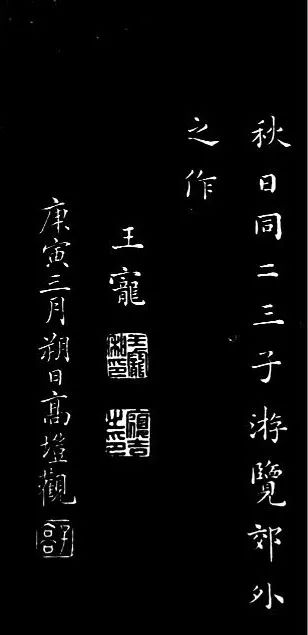 秋日同二三子游覽郊外
之作
王寵
庚寅三月朔日高塏觀